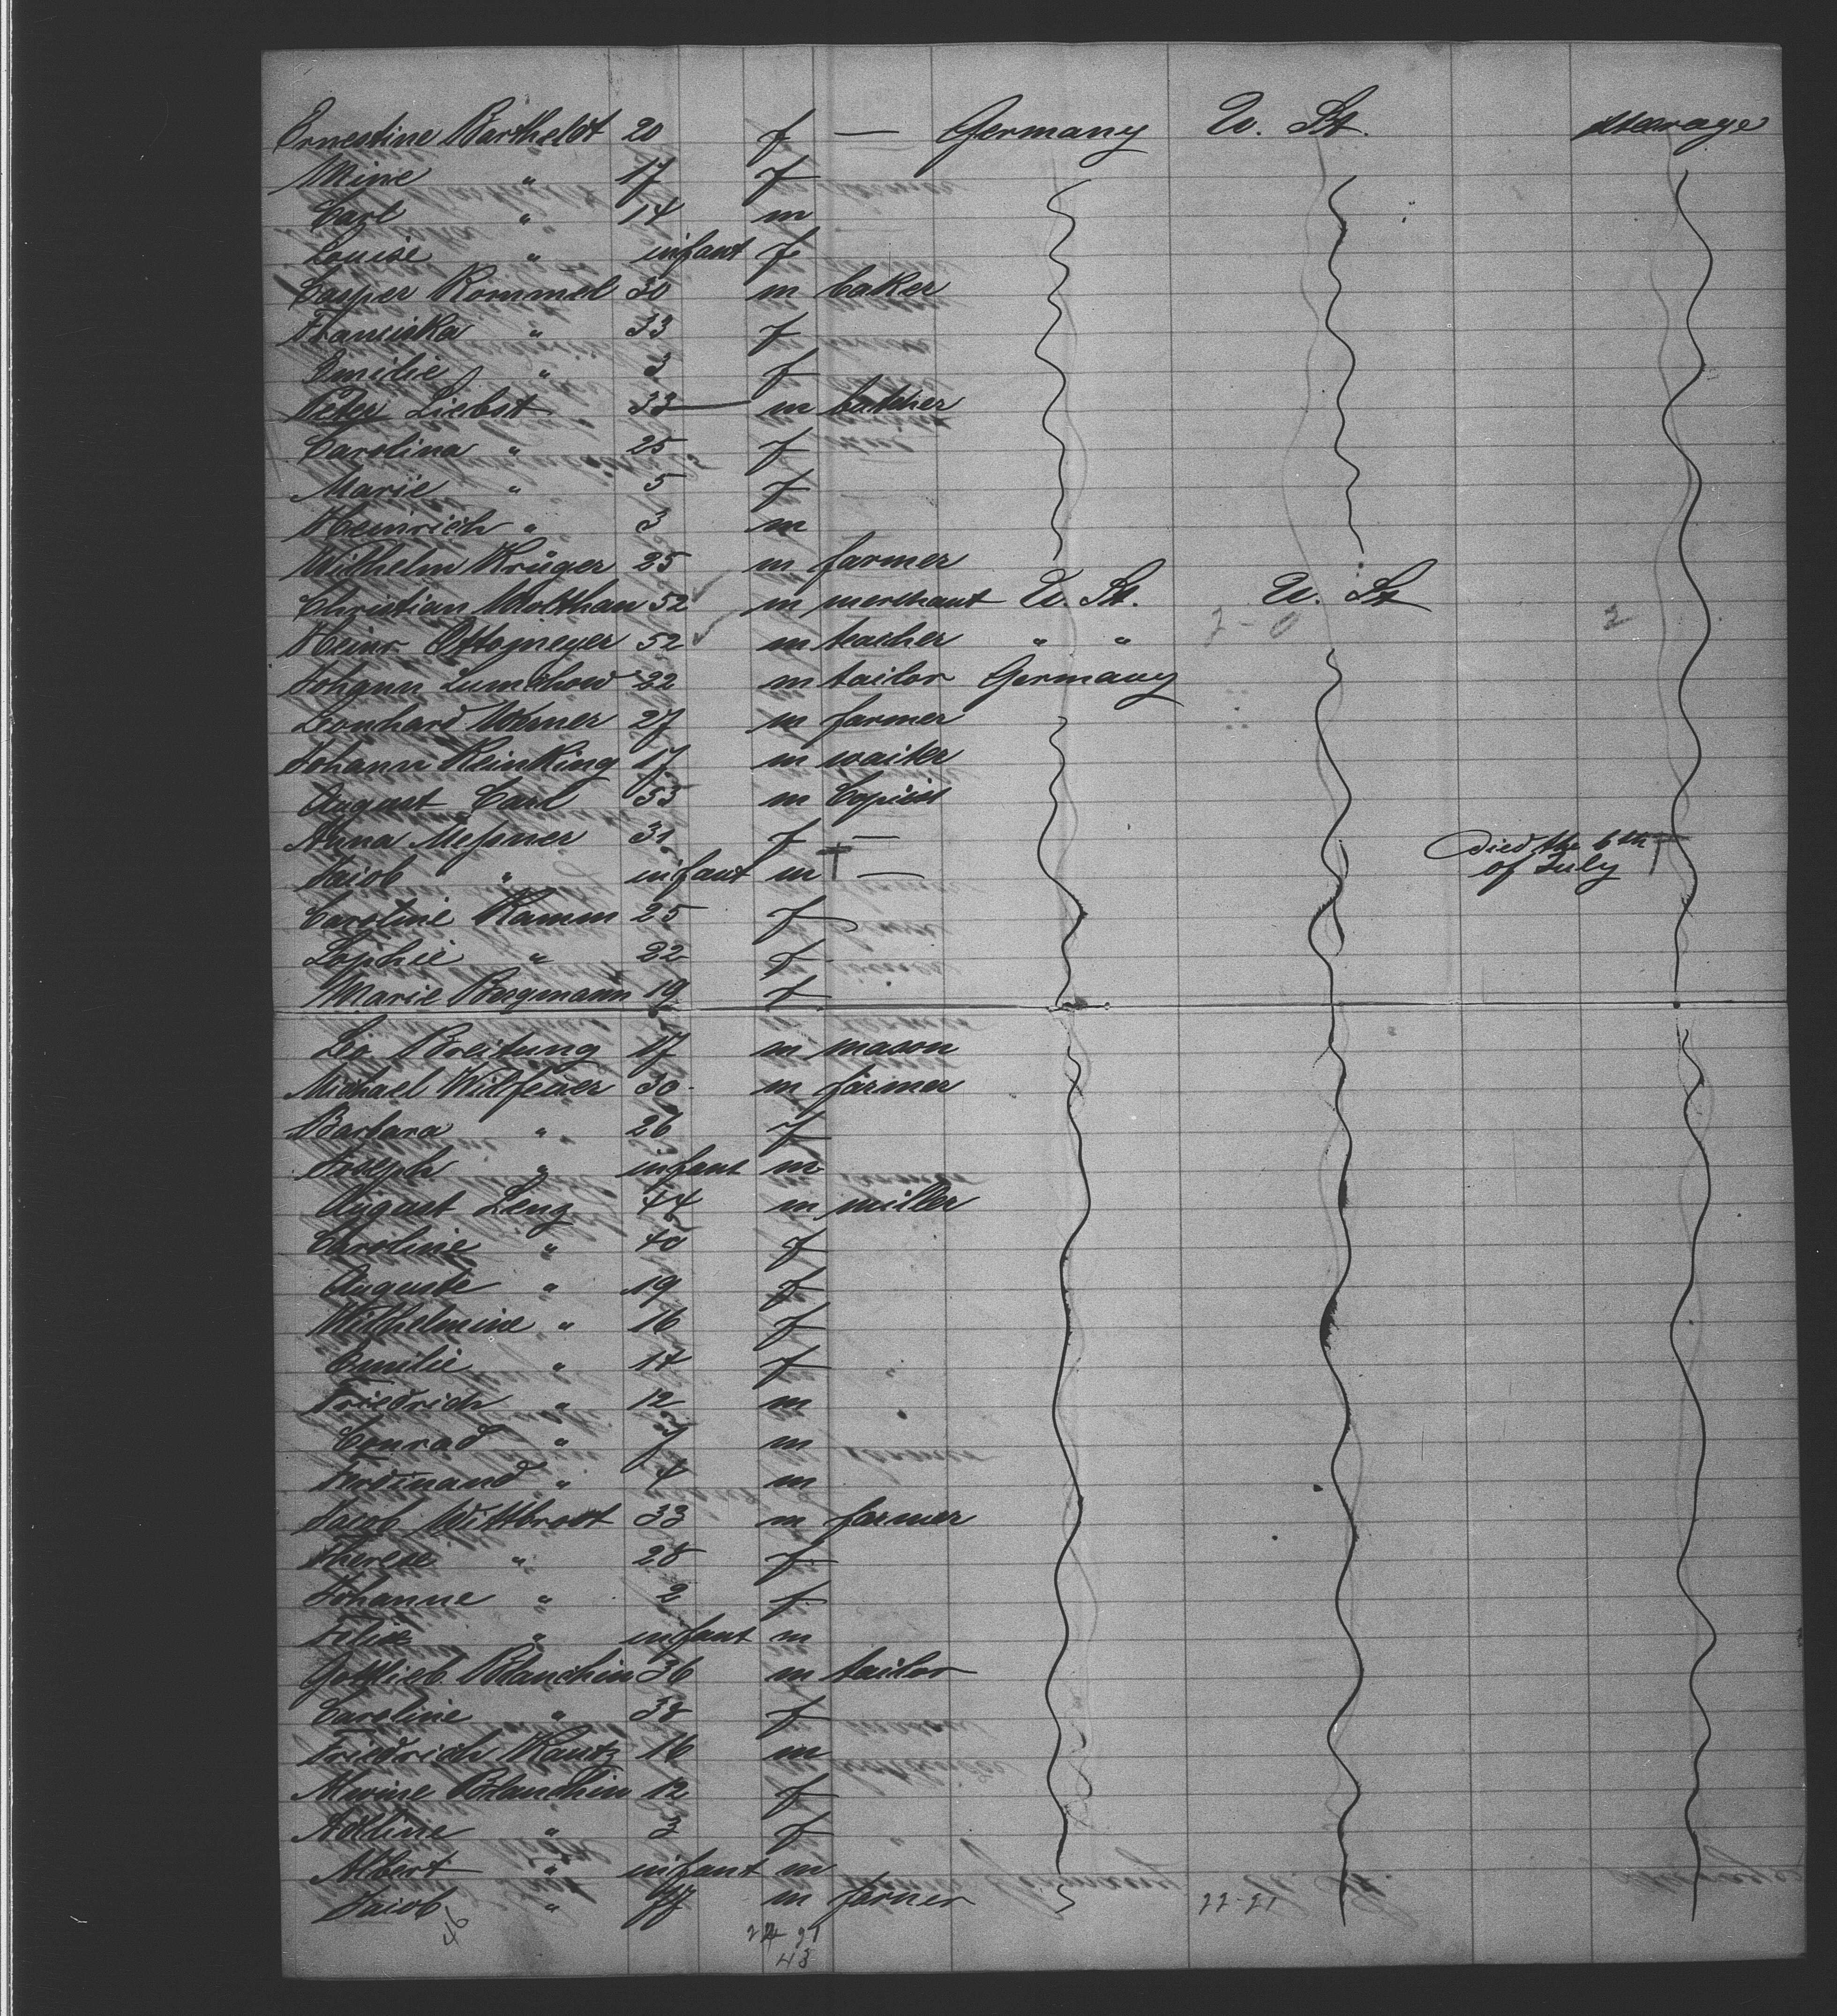 Ernestine Bartheldt 20 f — Germany U. St. steerage
Mine " 17 f
Carl " 14 m
Louise " infant f
Casper Rommel 30 m baker
Franciska " 33 f
Emilie " 3 f
Peter Liebst 33 m butcher
Carolina " 25 f
Marie " 5 f
Heinrich " 3 m
Wilhelm Krüger 25 m farmer
Christian Wolthan 52 m merchant U. St. U. St
Heinr. Ottomeyer 52 m teacher " " 2-0 2
Johann Lumchow 22 m tailor Germany
Leonhard Werner 27 m farmer
Johann Reinking 17 m waiter
August Carl 53 m Copist
Anna Meßner 31 f — Died the 6th
Jacob " infant m † — of July †
Caroline Kamm 25 f
Sophie " 22 f
Marie Bergmann 19 f
Leo Breitung 17 m mason
Michael Wildfeuer 30 m farmer
Barbara " 26 f
Joseph " infant m
August Lenz 44 m miller
Caroline " 40 f
Auguste " 19 f
Wilhelmine " 16 f
Emilie " 14 f
Friedrich " 12 m
Conrad " 7 m
Ferdinand " 4 m
Jacob Wittbrodt 33 m farmer
Therese " 28 f
Johanne " 2 f
Felix " infant m
Gottlieb Blanchin 36 m tailor
Caroline " 38 f
Friedrich Kautz 16 m
Alwine Blanchin 12 f
Adeline " 3 f
Albert " infant m
Jacob " 77 m farmer 22-21
46 24 21
43